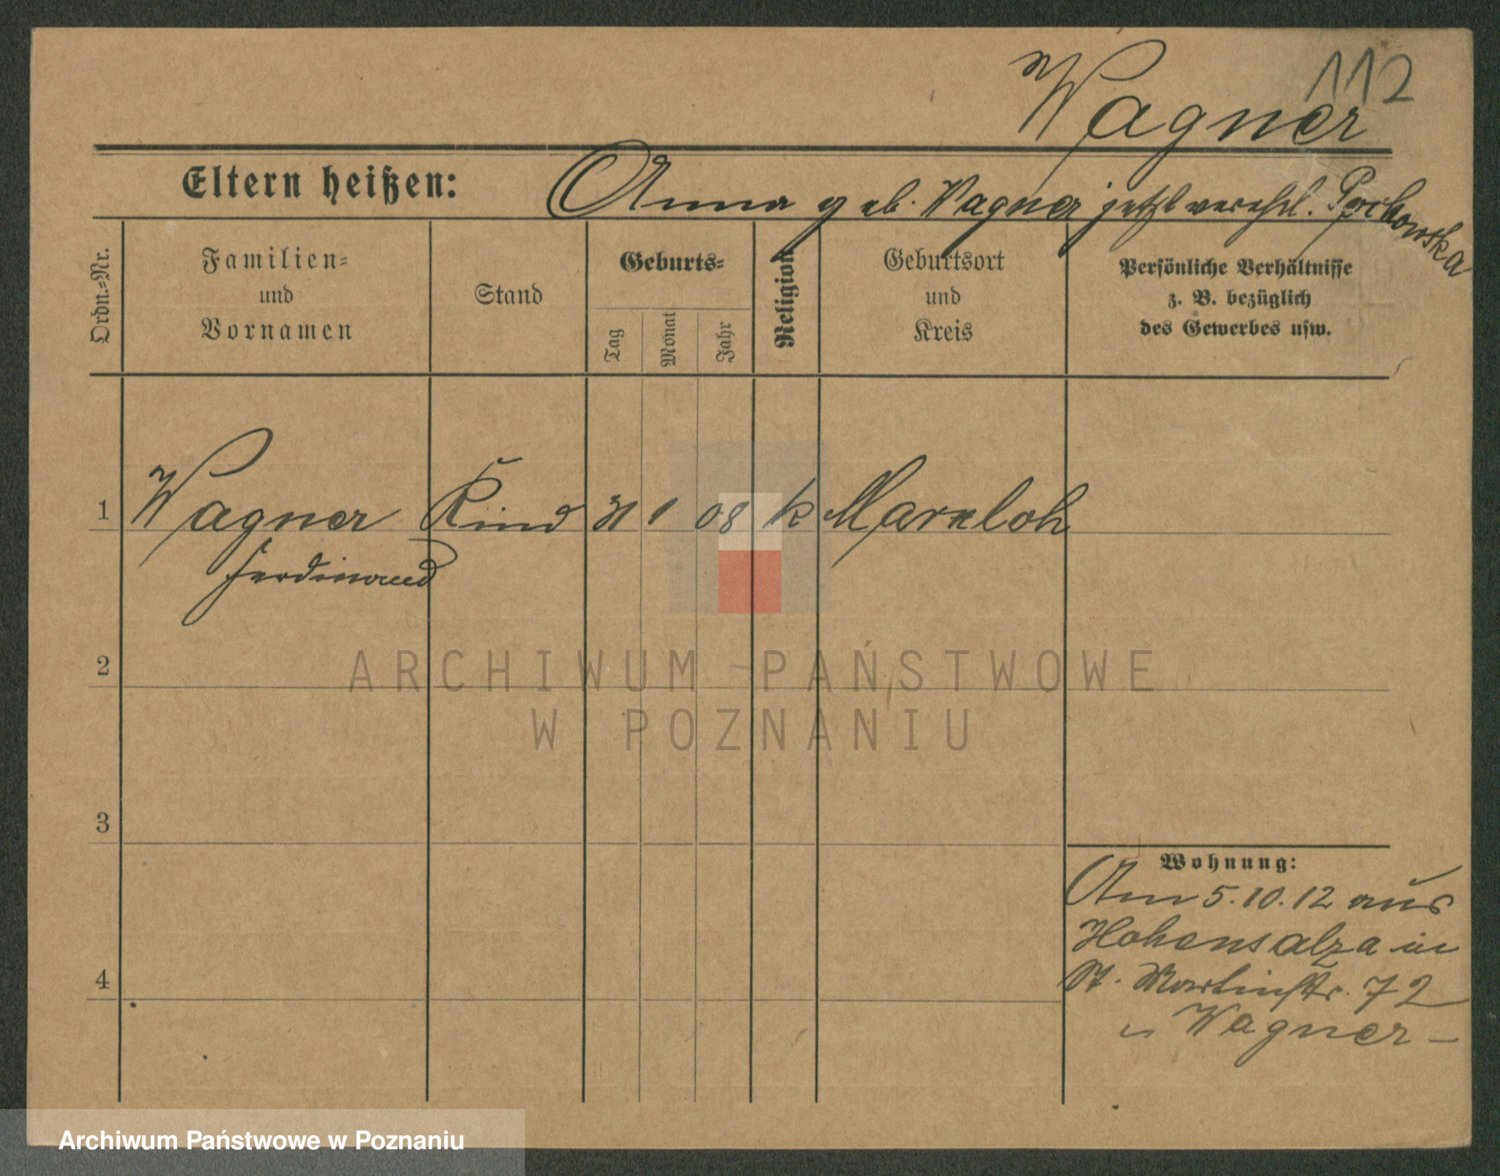 112
Wagner
Eltern heißen: Anna geb. Wagner jetzt verehl.
Ordn.-Nr.
Familien-
und
Vornamen
Stand
Geburts-
Tag
Monat
Jahr
Religion
Geburtsort
und
Kreis
Persönliche Verhältnisse
z. B. bezüglich
des Gewerbes usw.
1 Wagner Kind 31 1 08 k Marxloh
Ferdinand
2
3
4
Wohnung:
Am 5.10.12 aus
Hohensalza in
St. Martinstr. 72
Wagner
ARCHIWUM PAŃSTWOWE
W POZNANIU
Archiwum Państwowe w Poznaniu